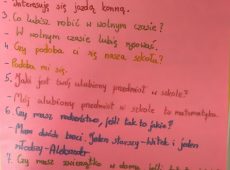 Interesuję się jazdą konną.
3. Co lubisz robić w wolnym czasie?
- W wolnym czasie lubię rysować.
4. Czy podoba ci się nasza szkoła?
- Podoba mi się.
5. Jaki jest twój ulubiony przedmiot w szkole?
- Mój ulubiony przedmiot w szkole to matematyka.
6. Czy masz rodzeństwo, jeśli tak to jakie?
- Mam dwóch braci. Jeden starszy - Witek i jeden
młodszy - Aleksander
7. Czy masz zwierzątko w domu, jeśli tak